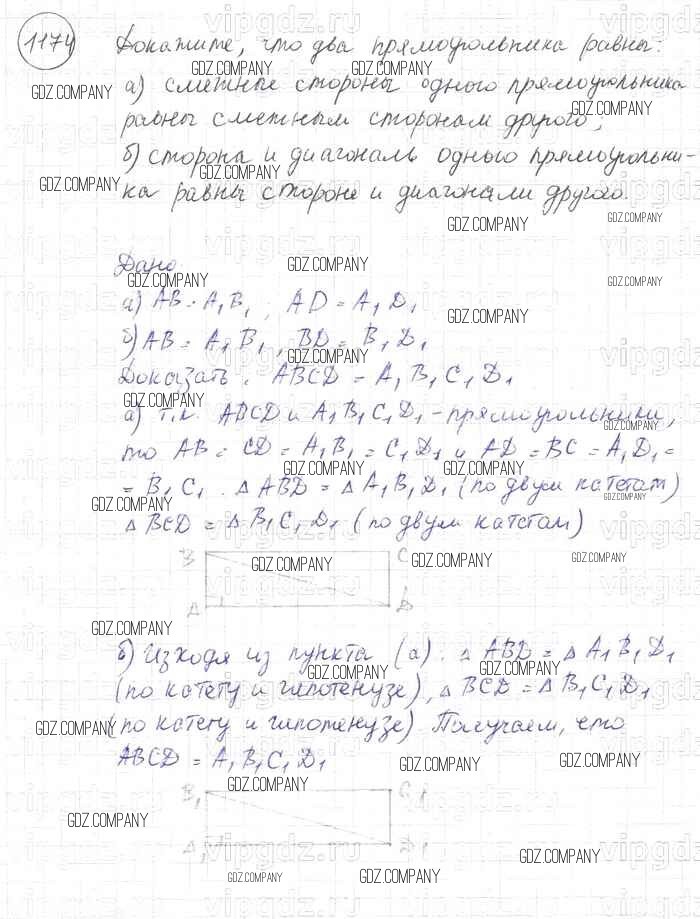 1174 Докажите, что два прямоугольника равны:
а) смежные стороны одного прямоугольника
равны смежным сторонам другого;
б) сторона и диагональ одного прямоугольни-
ка равны стороне и диагонали другого.
Дано
а) AB = A₁B₁, AD = A₁D₁
б) AB = A₁B₁, BD = B₁D₁
Доказать: ABCD = A₁B₁C₁D₁
а) Т.к. ABCD и A₁B₁C₁D₁ - прямоугольники,
то AB = CD = A₁B₁ = C₁D₁ и AD = BC = A₁D₁ =
= B₁C₁. △ABD = △A₁B₁D₁ (по двум катетам)
△BCD = △B₁C₁D₁ (по двум катетам)
B C
A D
б) Исходя из пункта (а). △ABD = △A₁B₁D₁
(по катету и гипотенузе), △BCD = △B₁C₁D₁
(по катету и гипотенузе) Получаем, что
ABCD = A₁B₁C₁D₁
B₁ C₁
A₁ D₁
GDZ.COMPANY
vipgdz.ru